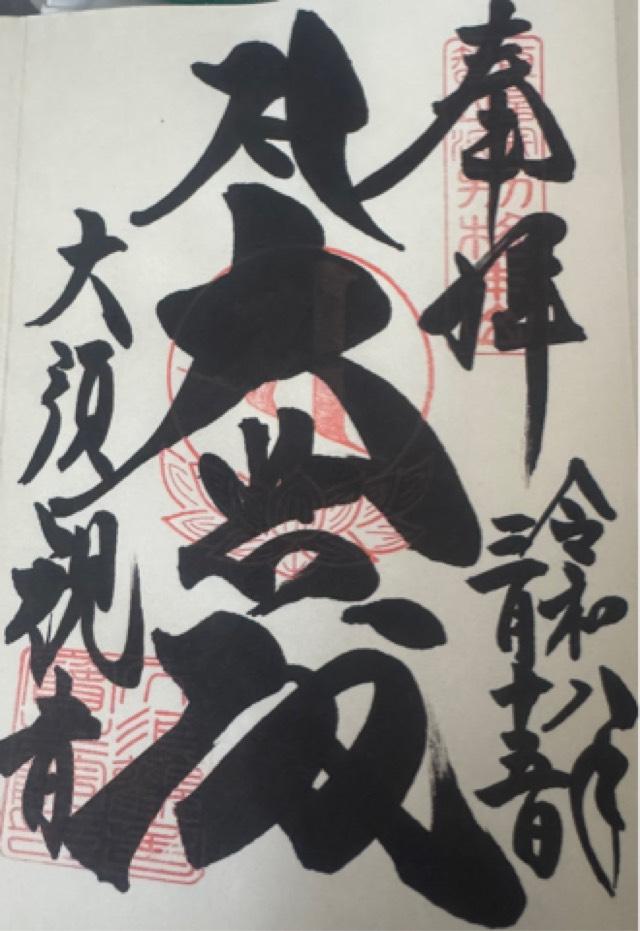 奉拝
令和八年
三月十五日
大悲殿
大須観音